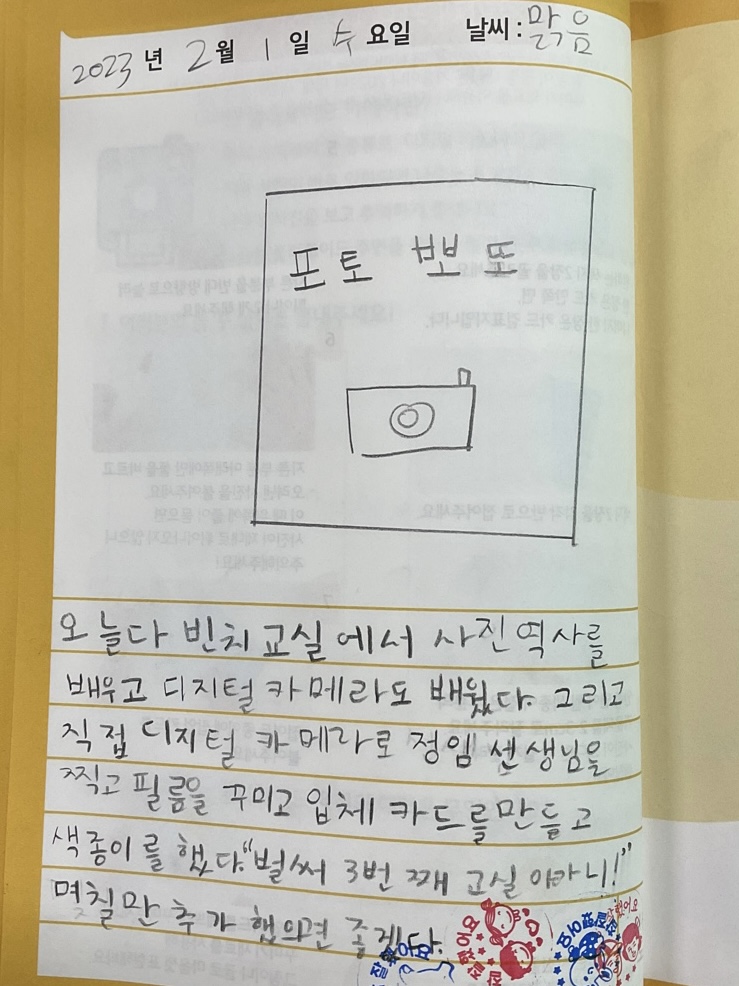 2023년 2월 1일 수요일 날씨: 맑음
포토 뽀또
오늘다 빈치교실에서 사진역사를
배우고 디지털 카메라도 배웠다. 그리고
직접 디지털 카메라로 정엠 선생님을
찍고 필름을 꾸미고 입체 카드를만들고
색종이를 했다. "벌써 3번 째 교실 이라니!"
며칠만 추가 햅의면 좋게다.
참 잘했어요